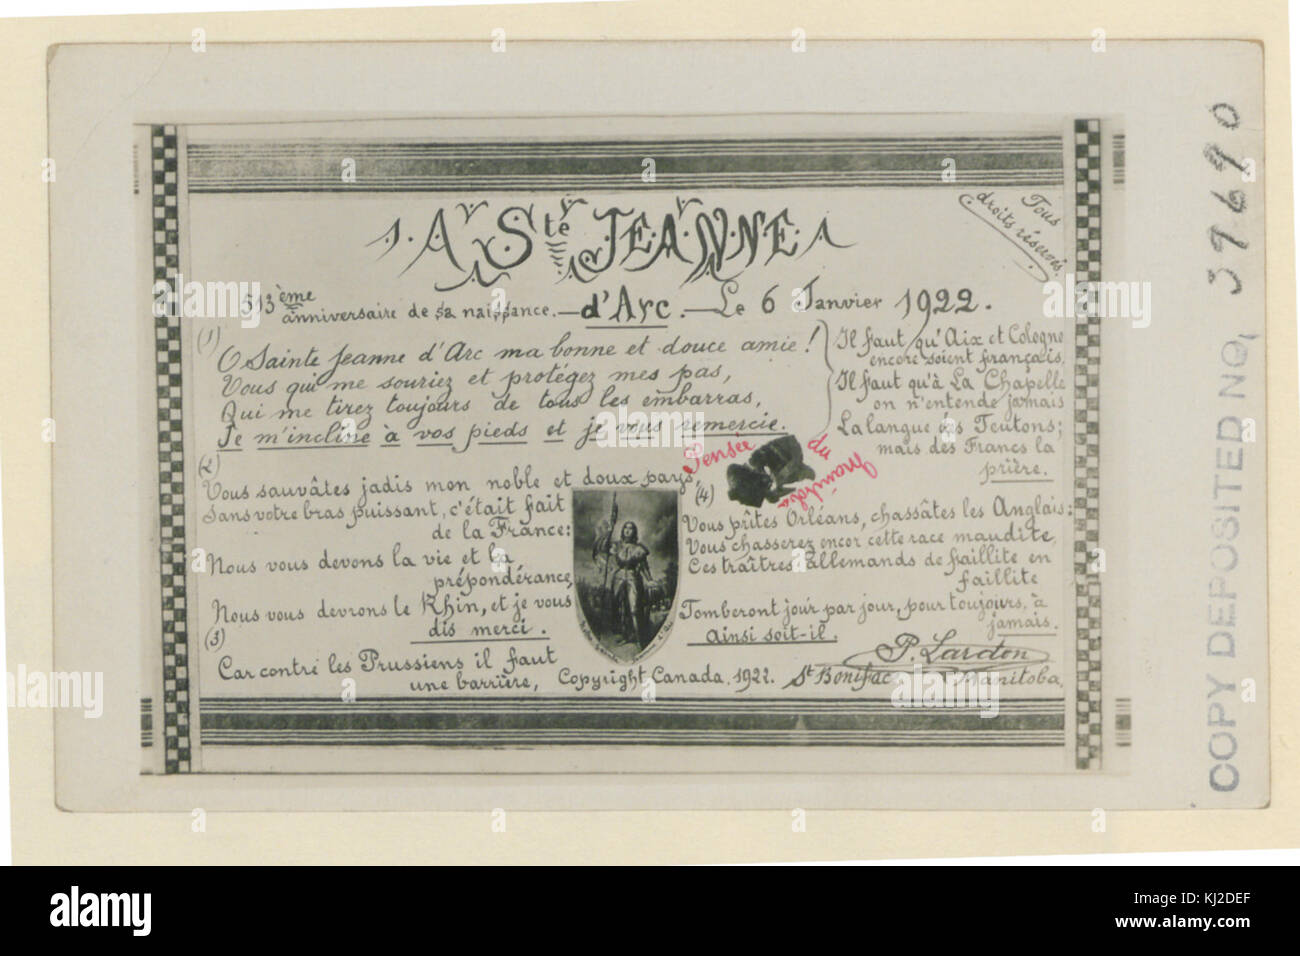 A Ste JEANNE
Tous
droits réservés.
513ème
anniversaire de sa naissance. — d'Arc. — Le 6 Janvier 1922.
(1)
O Sainte Jeanne d'Arc ma bonne et douce amie!
Vous qui me souriez et protégez mes pas,
Qui me tirez toujours de tous les embarras,
Je m'incline à vos pieds et je vous remercie.
(2)
Vous sauvâtes jadis mon noble et doux pays,
Sans votre bras puissant, c'était fait
de la France:
Nous vous devons la vie et la
prépondérance,
Nous vous devrons le Rhin, et je vous
dis merci.
(3)
Car contre les Prussiens il faut
une barrière,
Il faut qu'Aix et Cologne
encore soient français,
Il faut qu'à La Chapelle
on n'entende jamais
La langue des Teutons;
mais des Francs la
prière.
Pensée du Manitoba
(4)
Vous prîtes Orléans, chassâtes les Anglais:
Vous chasserez encor cette race maudite,
Ces traîtres allemands de faillite en
faillite
Tomberont jour par jour, pour toujours, à
jamais.
Ainsi soit-il.
P. Lardon
Copyright Canada, 1922. St Boniface Manitoba.
COPY DEPOSITED NO, 39690
alamy
KJ2DEF
www.alamy.com